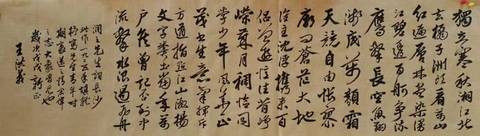 獨立寒秋湘江北
去橘子洲頭看萬山
紅遍層林盡染漫
江碧透百舸爭流
鷹擊長空魚翔
淺底萬類霜
天競自由悵寥
廓問蒼茫大地
誰主沉浮攜來百
侶曾遊憶往昔崢
嶸歲月稠恰同
學少年風華正
茂書生意氣揮斥
方遒指點江山激揚
文字糞土當年萬
戶侯曾記否到中
流擊水浪遏飛舟
先生詞長沙